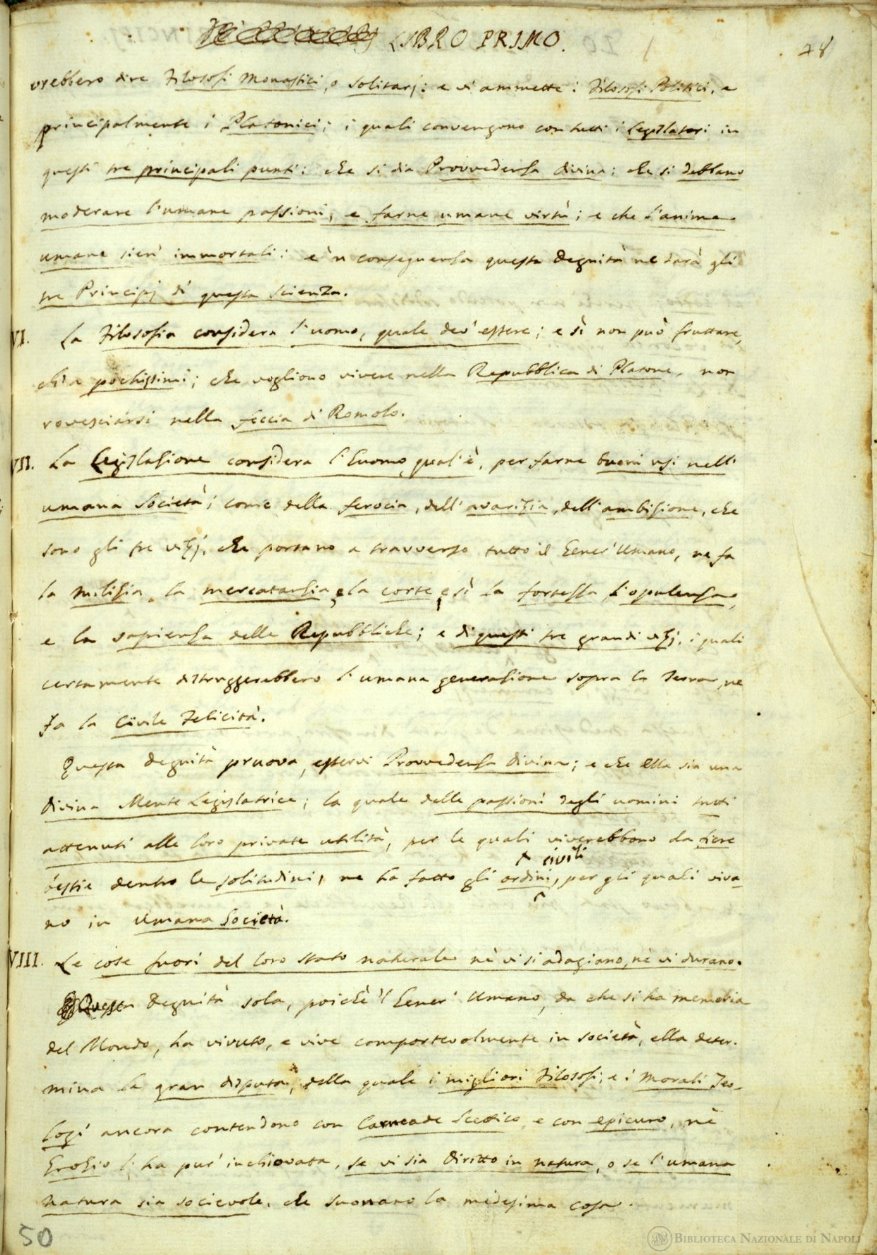 LIBRO PRIMO.
28
vrebbero dire Filosofi Monastici, o solitarj: e vi ammette i Filosofi Politici, e
principalmente i Platonici; i quali convengono con tutti i Legislatori in
questi tre principali punti: che si dia Provvedenza divina: che si debbano
moderare l'umane passioni, e farne umane virtù; e che l'anime
umane sien' immortali: e 'n conseguenza questa Degnità ne darà gli
tre Principj di questa Scienza.
VI. La Filosofia considera l'uomo, quale dev' essere; e sì non può fruttare,
ch'a pochissimi; che vogliono vivere nella Repubblica di Platone, non
rovesciarsi nella feccia di Romolo.
VII. La Legislazione considera l'Uomo, qual'è, per farne buoni usi nell'
umana Società; come della ferocia, dell'avarizia, dell'ambizione, che
sono gli tre vizj, che portano a travverso tutto il Gener' Umano, ne fa
la milizia, la mercatanzia, e la corte; e sì la fortezza, l'opulenza,
e la sapienza delle Repubbliche; e di questi tre grandi vizj, i quali
certamente distruggerebbero l'umana generazione sopra la Terra, ne
fa la Civile Felicità.
Questa Degnità pruova, esservi Provvedenza divina; e che ella sia una
divina Mente Legislatrice; la quale delle passioni degli uomini tutti
attenuti alle loro private utilità, per le quali viverebbono da fiere
bestie dentro le solitudini, ne ha fatto gli ordini civili, per gli quali viva-
no in Umana Società.
VIII. Le cose fuori del loro stato naturale nè vi si adagiano, nè vi durano.
Questa Degnità sola, poichè 'l Gener' Umano, da che si ha memoria
del Mondo, ha vivuto, e vive comportevolmente in società, ella deter-
mina la gran disputa, della quale i migliori Filosofi, e i Morali Teo-
logi ancora contendono con Carneade Scettico, e con Epicuro, nè
Grozio l'ha pur' inchiovata, se vi sia Diritto in natura, o se l'umana
natura sia socievole, che suonano la medesima cosa.
50
BIBLIOTECA NAZIONALE DI NAPOLI